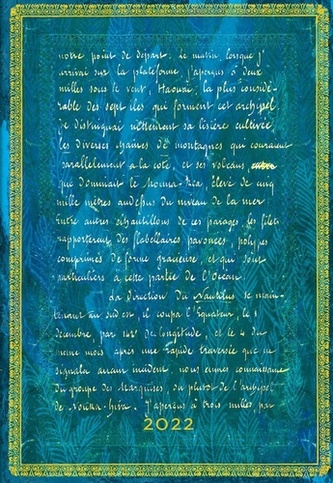 notre point de départ. Le matin, lorsque j'
arrivai sur la plateforme, j'aperçus à deux
milles sous le vent, Haouaï, la plus considé-
rable des sept îles qui forment cet archipel
Je distinguai nettement sa lisière cultivée
les diverses chaînes de montagnes qui couraient
parallèlement à la côte, et ses volcans,
que dominait le Mouna-Kea, élevé de cinq
mille mètres audessus du niveau de la mer
Entre autres échantillons de ces parages, les filets
rapportèrent des flabellaires pavonées, polypes
comprimés de forme gracieuse, et qui sont
particuliers à cette partie de l'Océan.
La direction du Nautilus se main-
tenant au sud est, il coupa l'Equateur, le 1
décembre, par 142° de longitude, et le 4 du
même mois, après une rapide traversée que ne
signala aucun incident, nous eûmes connaissance
du groupe des Marquises, ou plutôt de l'archipel
de Nouka-hiva. J'aperçus à trois milles, par
2022